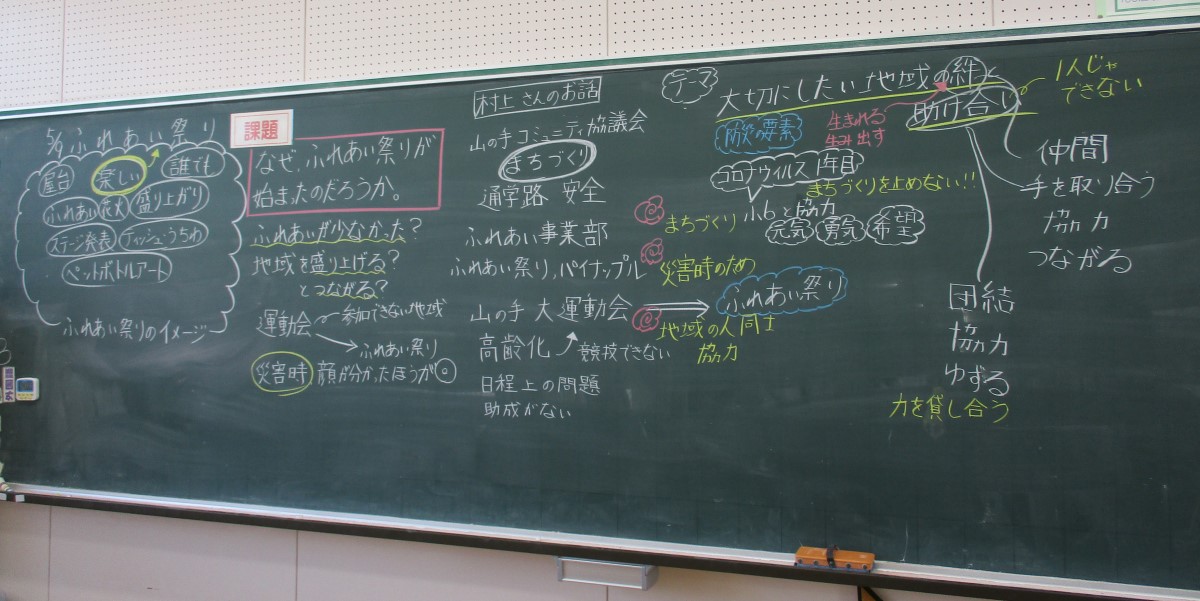 5/1 ふれあい祭り
屋台 楽しい 誰でも
ふれあい花火 盛り上がり
ステージ発表 ティッシュ・うちわ
ペットボトルアート
ふれあい祭りのイメージ
課題
なぜ、ふれあい祭りが
始まったのだろうか。
ふれあいが少なかった?
地域を盛り上げる?
とつながる?
運動会 参加できない地域
ふれあい祭り
災害時 顔が分かったほうが◎
村上さんのお話
山の手コミュニティ協議会
まちづくり
通学路 安全
ふれあい事業部
ふれあい祭り,パイナップル
山の手 大運動会
高齢化 競技できない
日程上の問題
助成がない
まちづくり
災害時のため
地域の人同士
協力
テーマ
大切にしたい地域の絆と
助け合い
1人じゃ
できない
防災の要素
生まれる
生み出す
コロナウイルス1年目
まちづくりを止めない!!
小6と協力
元気 勇気 希望
ふれあい祭り
仲間
手を取り合う
協力
つながる
団結
協力
ゆずる
力を貸し合う